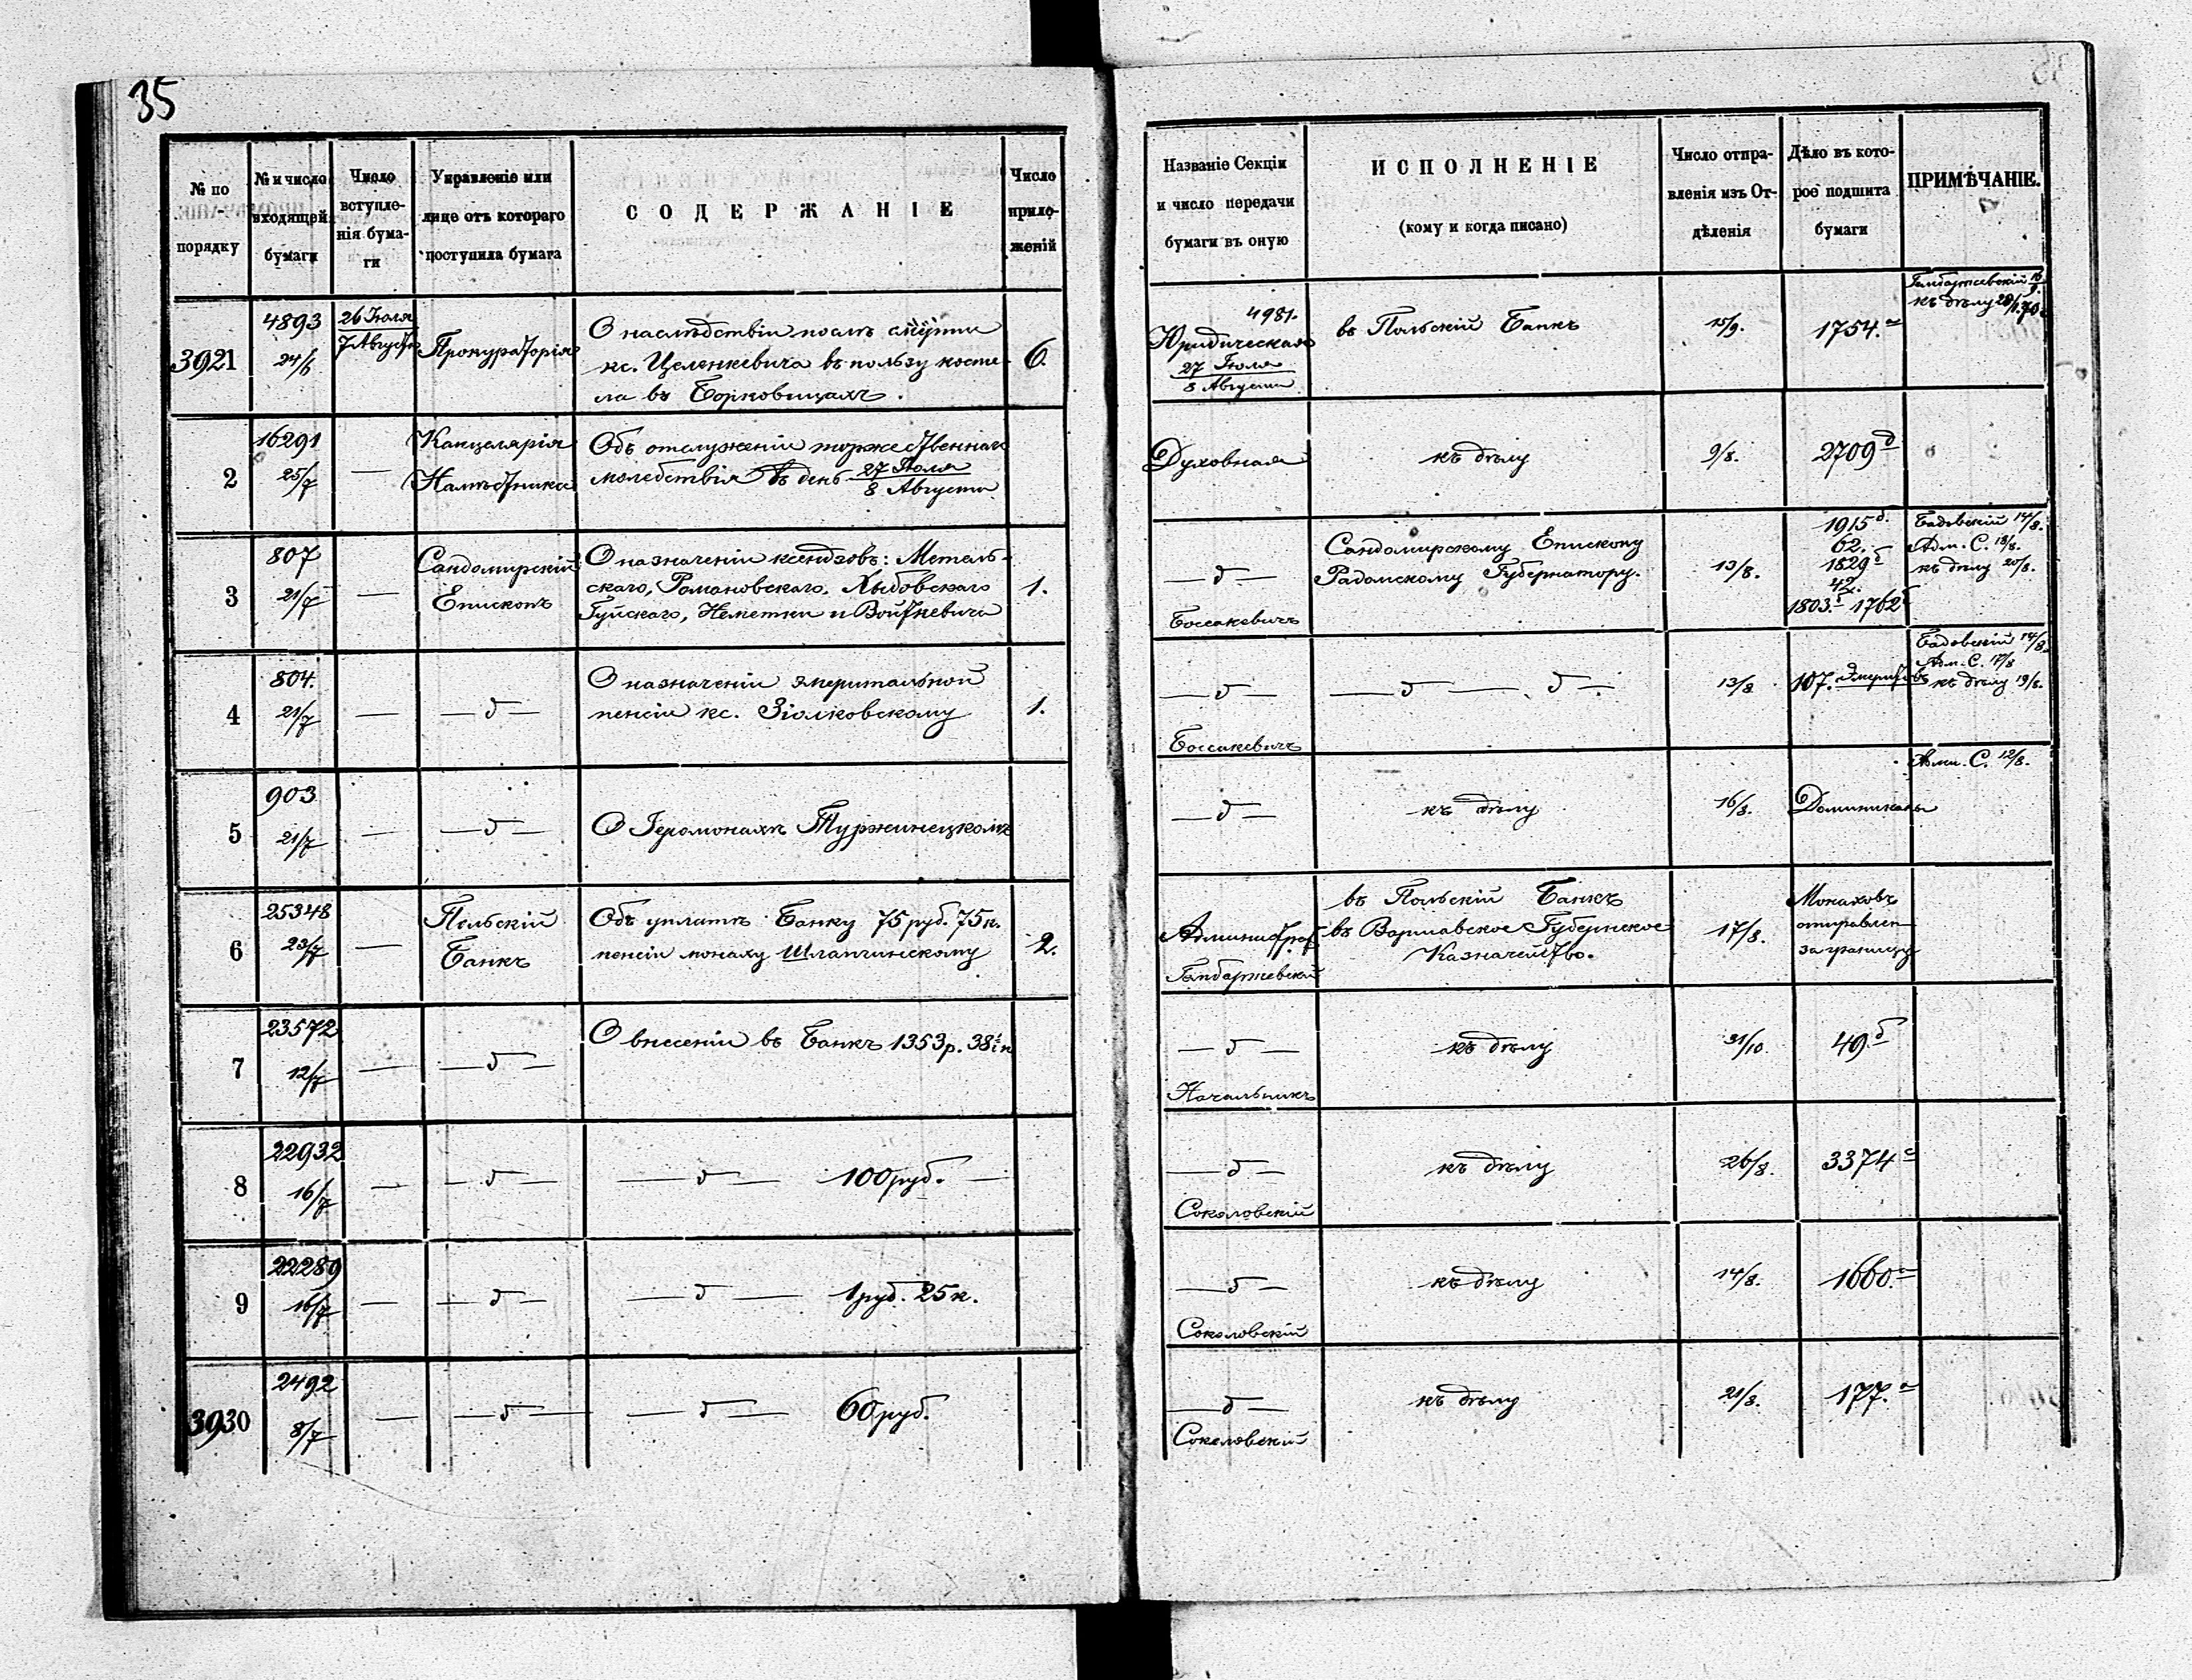 35
№ по порядку
№ и число входящей бумаги
Число вступле-нія бума-ги
Управленіе или лице отъ котораго поступила бумага
СОДЕРЖАНІЕ
Число прило-женій
Названіе Секціи и число передачи бумаги въ оную
ИСПОЛНЕНІЕ
(кому и когда писано)
Число отпра-вленія изъ От-дѣленія
Дѣло въ кото-рое подшита бумаги
ПРИМѢЧАНІЕ.
3921
4893
24/6
26 Іюля
7 Августа
Прокураторія
О наслѣдствіи послѣ смерти
кс. Целенкевича въ пользу косте-
ла въ Борковицахъ.
6.
4981.
Юридическая
27 Іюля
8 Августа
въ Польскій Банкъ
15/9.
1754.а
къ дѣлу
2
16291
25/7
—
Канцелярія
Намѣстника
Объ отслуженіи торжественнаго
молебствія въ день 27 Іюля
8 Августа
Духовная
къ дѣлу
9/8.
2709 д
3
807
21/7
—
Сандомирскій
Епископъ
О назначеніи ксендзовъ: Метель-
скаго, Романовскаго, Хыбовскаго
Гуйскаго, Неметки и Войткевича
1.
— д —
Боссакевичъ
Сандомирскому Епископу
Радомскому Губернатору.
13/8.
1915 б.
62.
1829 б
42.
1803. б 1762 б
Бадовскій 14/8.
Адм. С. 18/8.
къ дѣлу 20/8.
4
804.
21/7
—
— д —
О назначеніи эмеритальной
пенсіи кс. Зіолковскому
1.
— д —
Боссакевичъ
— д — . д — .
13/8
107. Эмеритовъ
Бадовскій 14/8.
Адм. С. 17/8
къ дѣлу 19/8.
5
903
21/7
—
— д —
О Іеромонахѣ Туржинецкомъ
— д —
къ дѣлу
16/8.
Доминиканы
Адми. С. 12/8.
6
25348
23/7
—
Польскій
Банкъ
Объ уплатѣ Банку 75 руб. 75 к.
пенсіи монаху Шлапчинскому
2.
Администрат
Гамбаржевскій
въ Польскій Банкъ
въ Варшавское Губернское
Казначейство.
17/8.
Монаховъ
отправлен
за границу
7
23572
12/7
—
— д —
О внесеніи въ Банкъ 1353 р. 38½ к
— д —
Начальникъ
къ дѣлу
31/10.
49. б
8
22932
16/7
—
— д —
— д — 100 руб. —
— д —
Соколовскій
къ дѣлу
26/8.
3374 а
9
22289
16/7
—
— д —
— д — 1 руб. 25 к.
— д —
Соколовскій
къ дѣлу
14/8.
1660. а
3930
2492
8/7
—
— д —
— д — 60 руб.
— д —
Соколовскій
къ дѣлу
21/8.
177. а